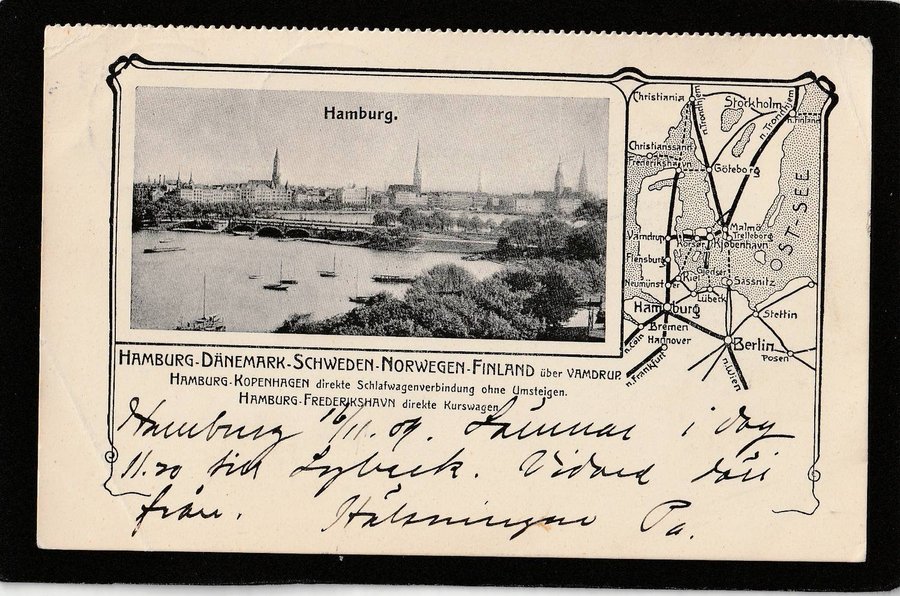 Hamburg.
Christiania
n. Trondhjem
Stockholm
n. Trondhjem
n. Finland
Christianssand
Frederikshavn
Göteborg
OST-SEE
Malmö
Trelleborg
Vamdrup
Korsör
Kjøbenhavn
Flensburg
Gjedser
Kiel
Sassnitz
Neumünster
Lübeck
Hamburg
Stettin
Bremen
n. Cöln
Hannover
Berlin
Posen
n. Frankfurt
n. Wien
HAMBURG-DÄNEMARK-SCHWEDEN-NORWEGEN-FINLAND über VAMDRUP.
HAMBURG-KOPENHAGEN direkte Schlafwagenverbindung ohne Umsteigen.
HAMBURG-FREDERIKSHAVN direkte Kurswagen
Hamburg 16/11.09. Lämnar i dag
11.20 till Lybeck. Vidare
från. Hälsningar Pa.